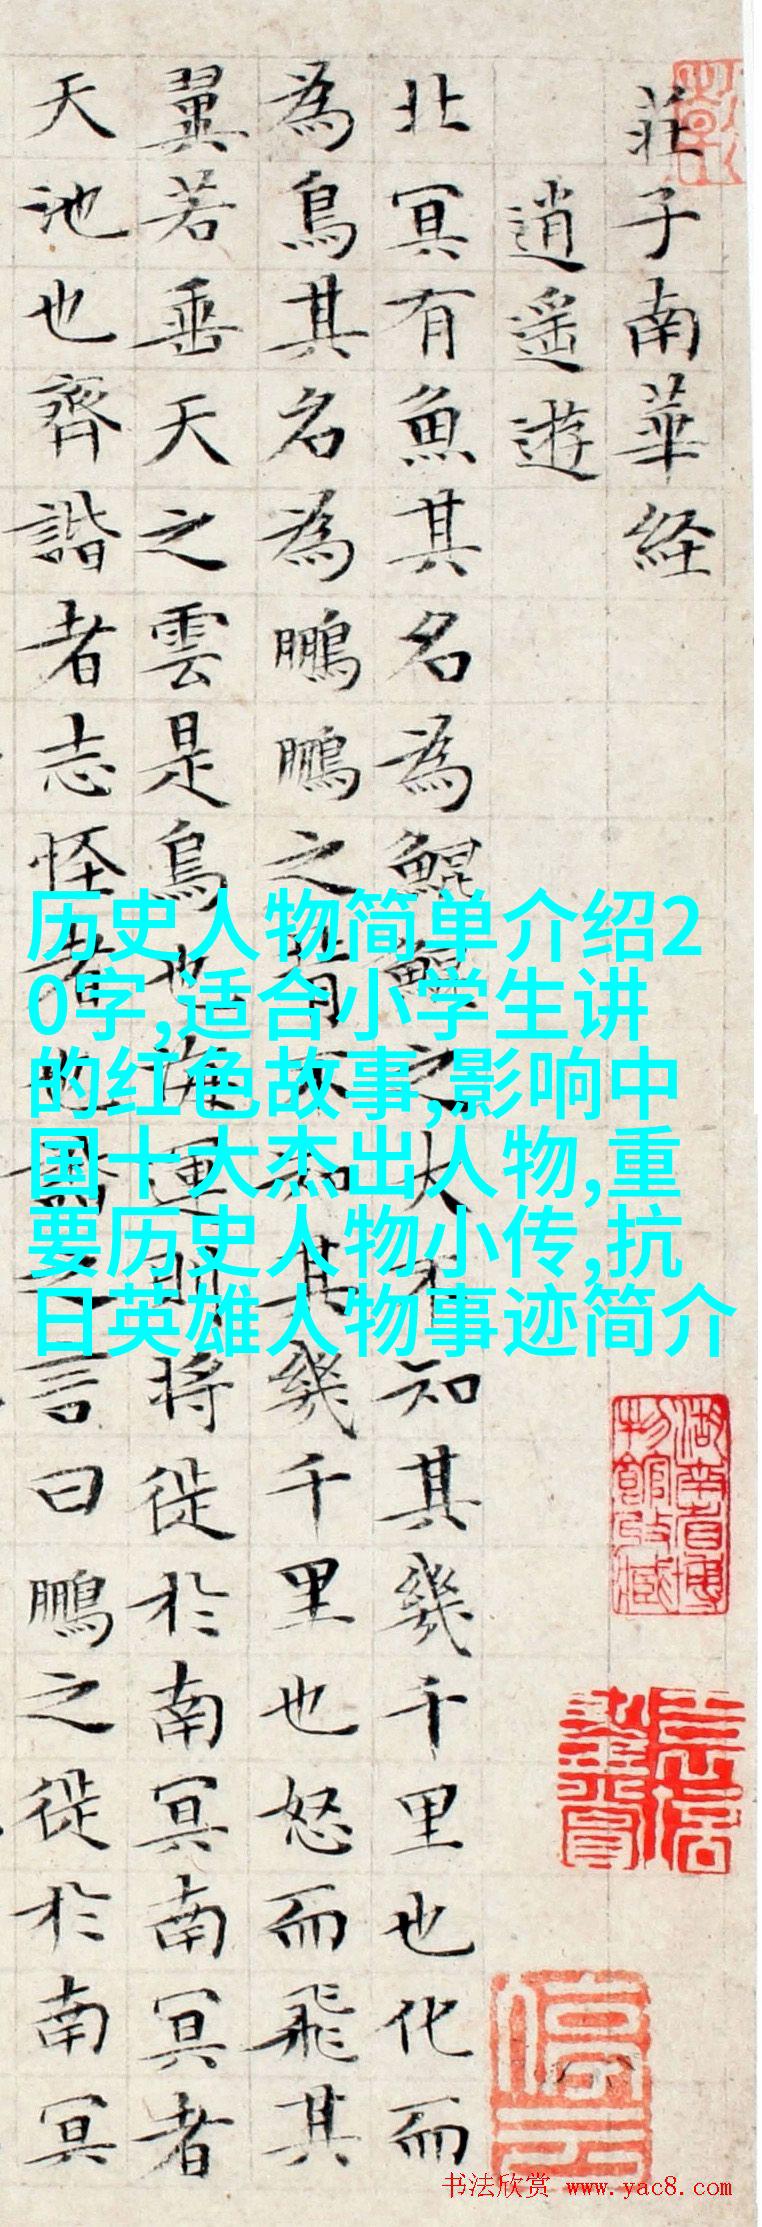 莊子南華経
逍遥遊
北冥有魚其名為鯤鯤之大不知其幾千里也化而
為鳥其名為鵬鵬之背不知其幾千里也怒而飛其
翼若垂天之雲是鳥也海運則将徙於南冥南冥者
天池也齊諧者志怪者也諧之言曰鵬之徙於南冥
历史人物简单介绍2
0字,适合小学生讲
的红色故事,影响中
国十大杰出人物,重
要历史人物小传,抗
日英雄人物事迹简介
湖南省博
物館收藏
停云
书法欣赏 www.yac8.com